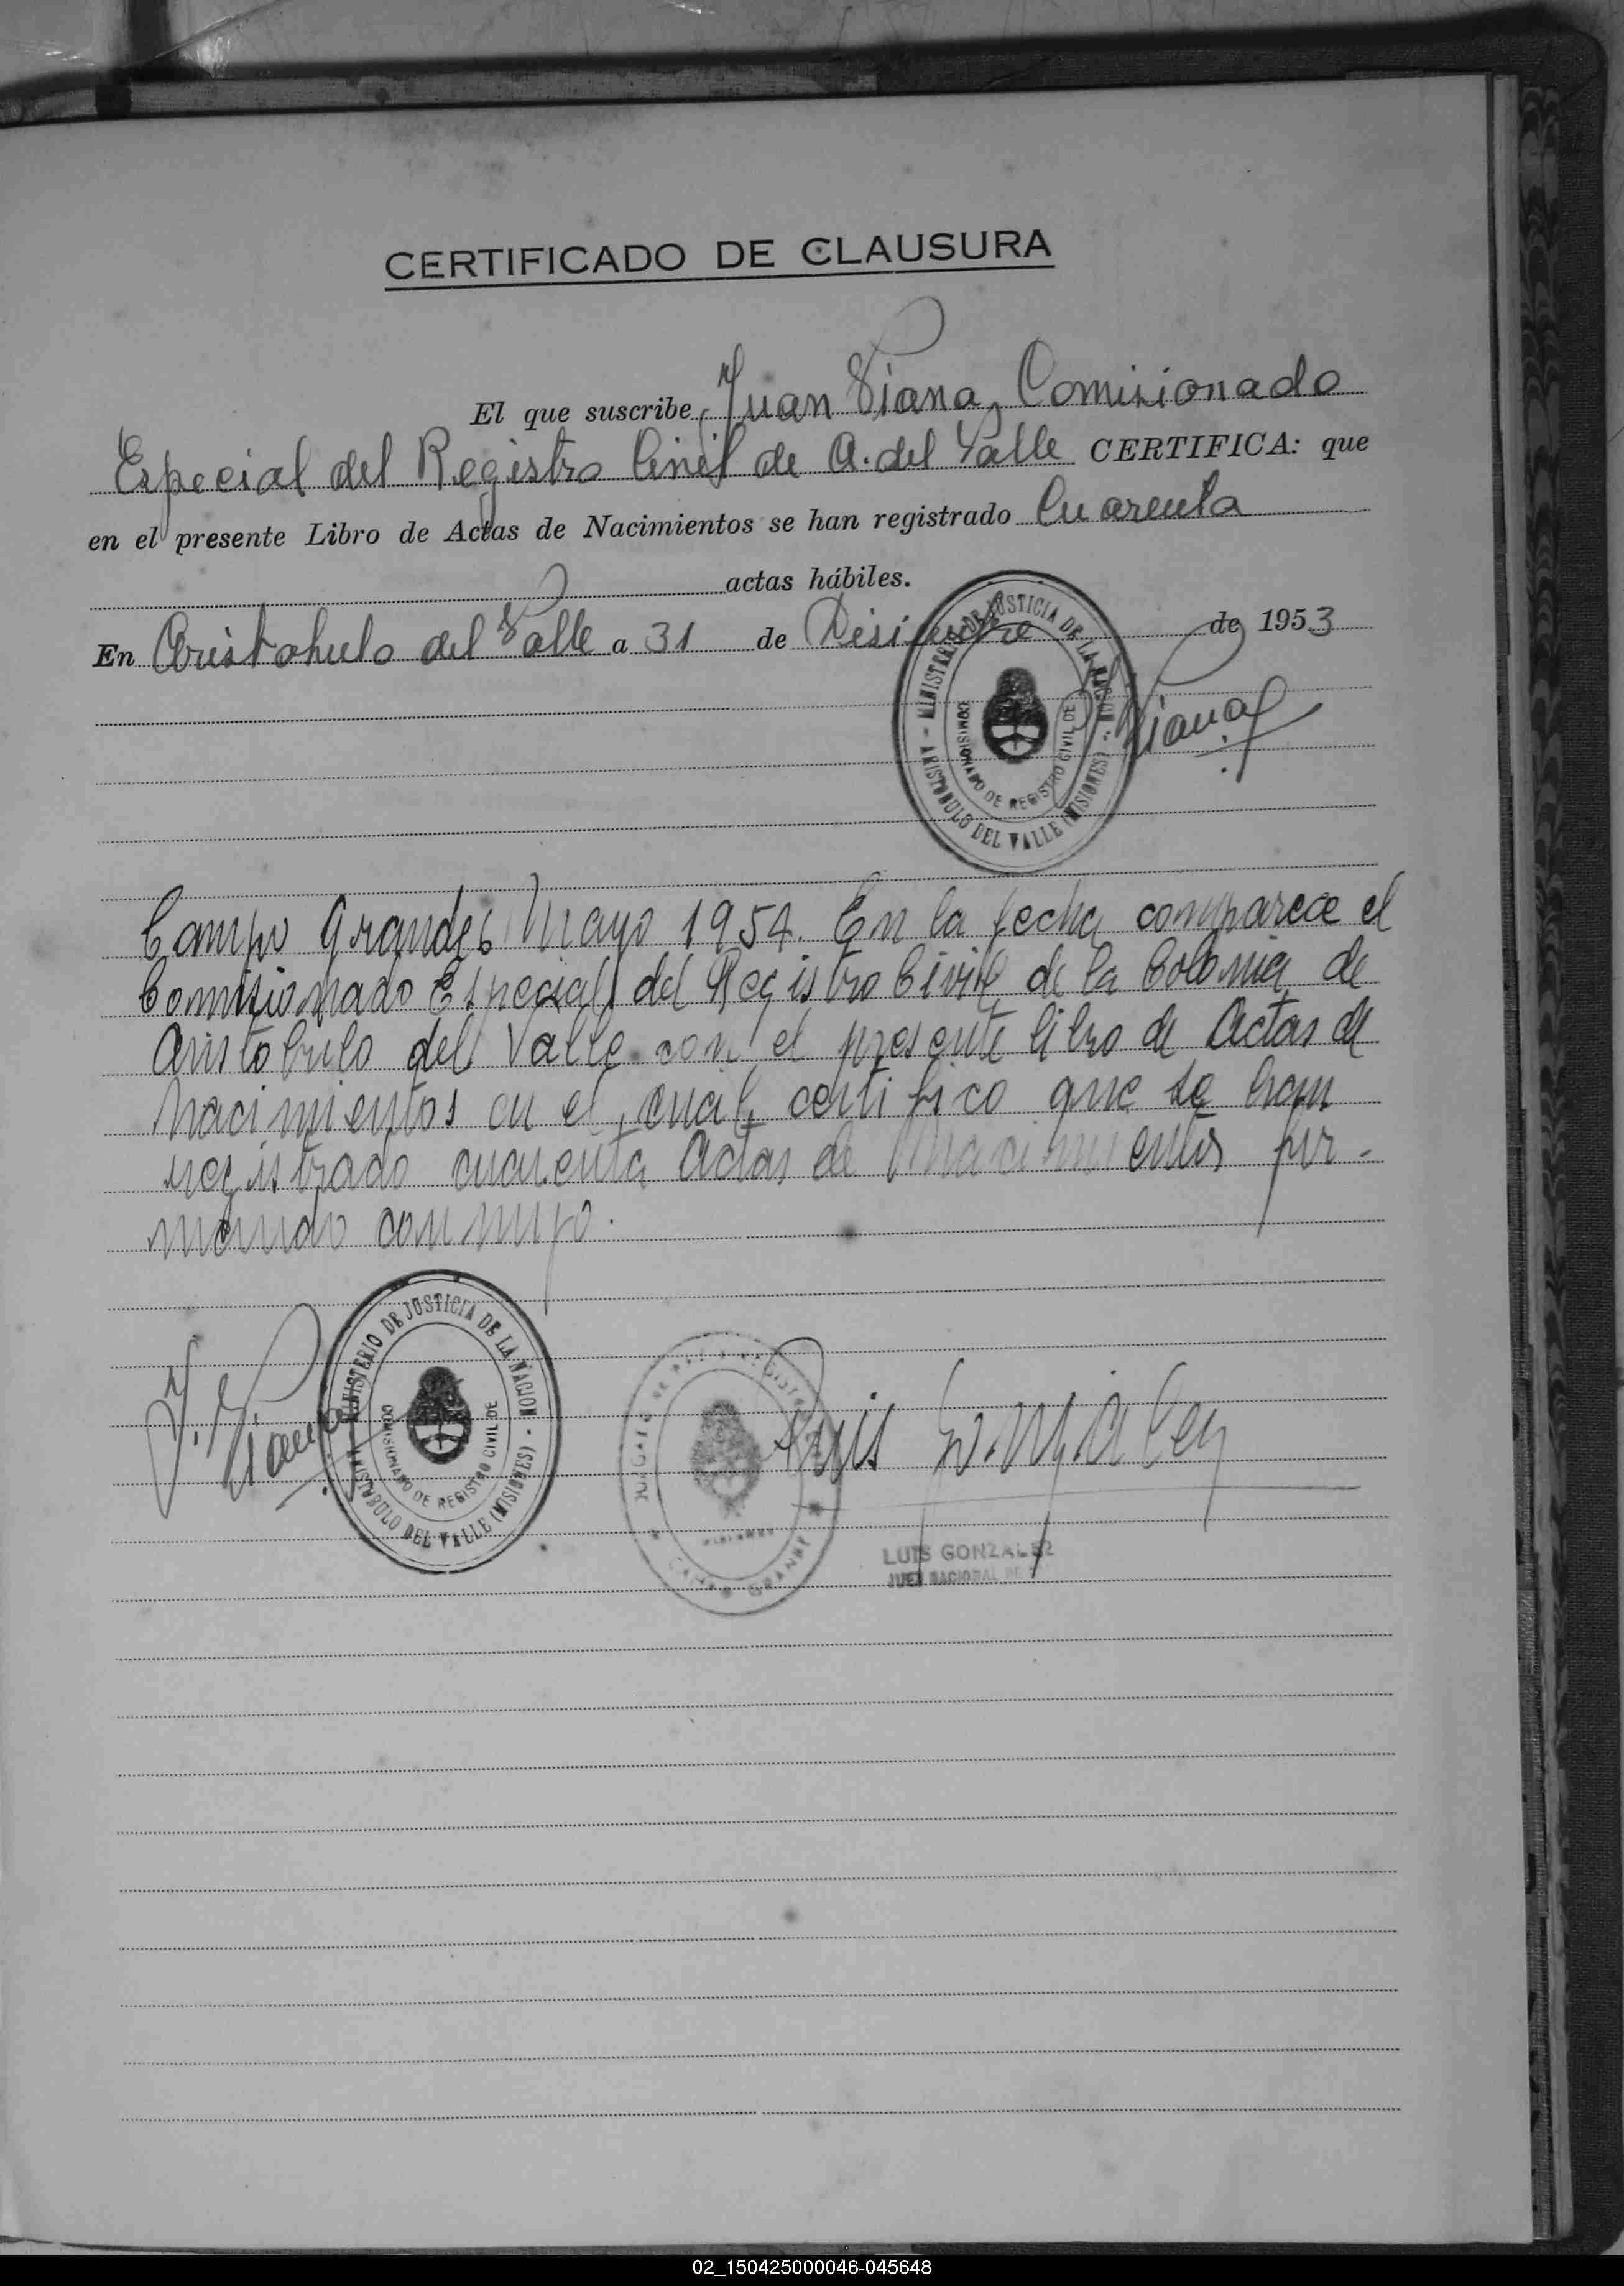 CERTIFICADO DE CLAUSURA
El que suscribe, Juan Piana, Comisionado
Especial del Registro Civil de A. del Valle CERTIFICA: que
en el presente Libro de Actas de Nacimientos se han registrado Cuarenta
actas hábiles.
En Aristobulo del Valle a 31 de Disiembre de 1953
MINISTERIO DE JUSTICIA DE LA NACION
COMISIONADO DE REGISTRO CIVIL DE
ARISTOBULO DEL VALLE (MISIONES)
Piana
Campo Grande, 6 Mayo 1954. En la fecha comparece el
Comisionado Especial del Registro Civil de la Colonia de
Aristobulo del Valle con el presente libro de Actas de
Nacimientos en el cual certifico que se han
registrado cuarenta Actas de Nacimientos fir-
mando conmigo.
J. Piana
MINISTERIO DE JUSTICIA DE LA NACION
COMISIONADO DE REGISTRO CIVIL DE
ARISTOBULO DEL VALLE (MISIONES)
JUZGADO DE PAZ Y REGISTRO
MISIONES
CAMPO GRANDE
Luis Gonzalez
LUIS GONZALEZ
JUEZ NACIONAL DE
02_150425000046-045648